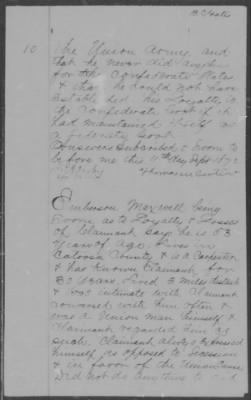 10
the Union Army, and
that he never did anything
for the Confederate States
& that he could not have
established his Loyalty to
the Confederate Govt if it
had maintained itself as
a seperate Govt
Answers Subscribed & Sworn to
before me this 11th day Sept 1872
Emberson Maxwell being
Sworn as to Loyalty & Losses
of Claimant says he is 53
Years of Age. Lives in
Catoosa County & is a Carpenter
& has Known Claimant for
30 Years Lived 3 miles distant
& was intimate with Claimant
conversed with him often &
was a Union man himself &
Claimant regarded him as
such. Claimant always expressed
himself as opposed to Secession
& in favor of the Union cause
Did not do anything to aid